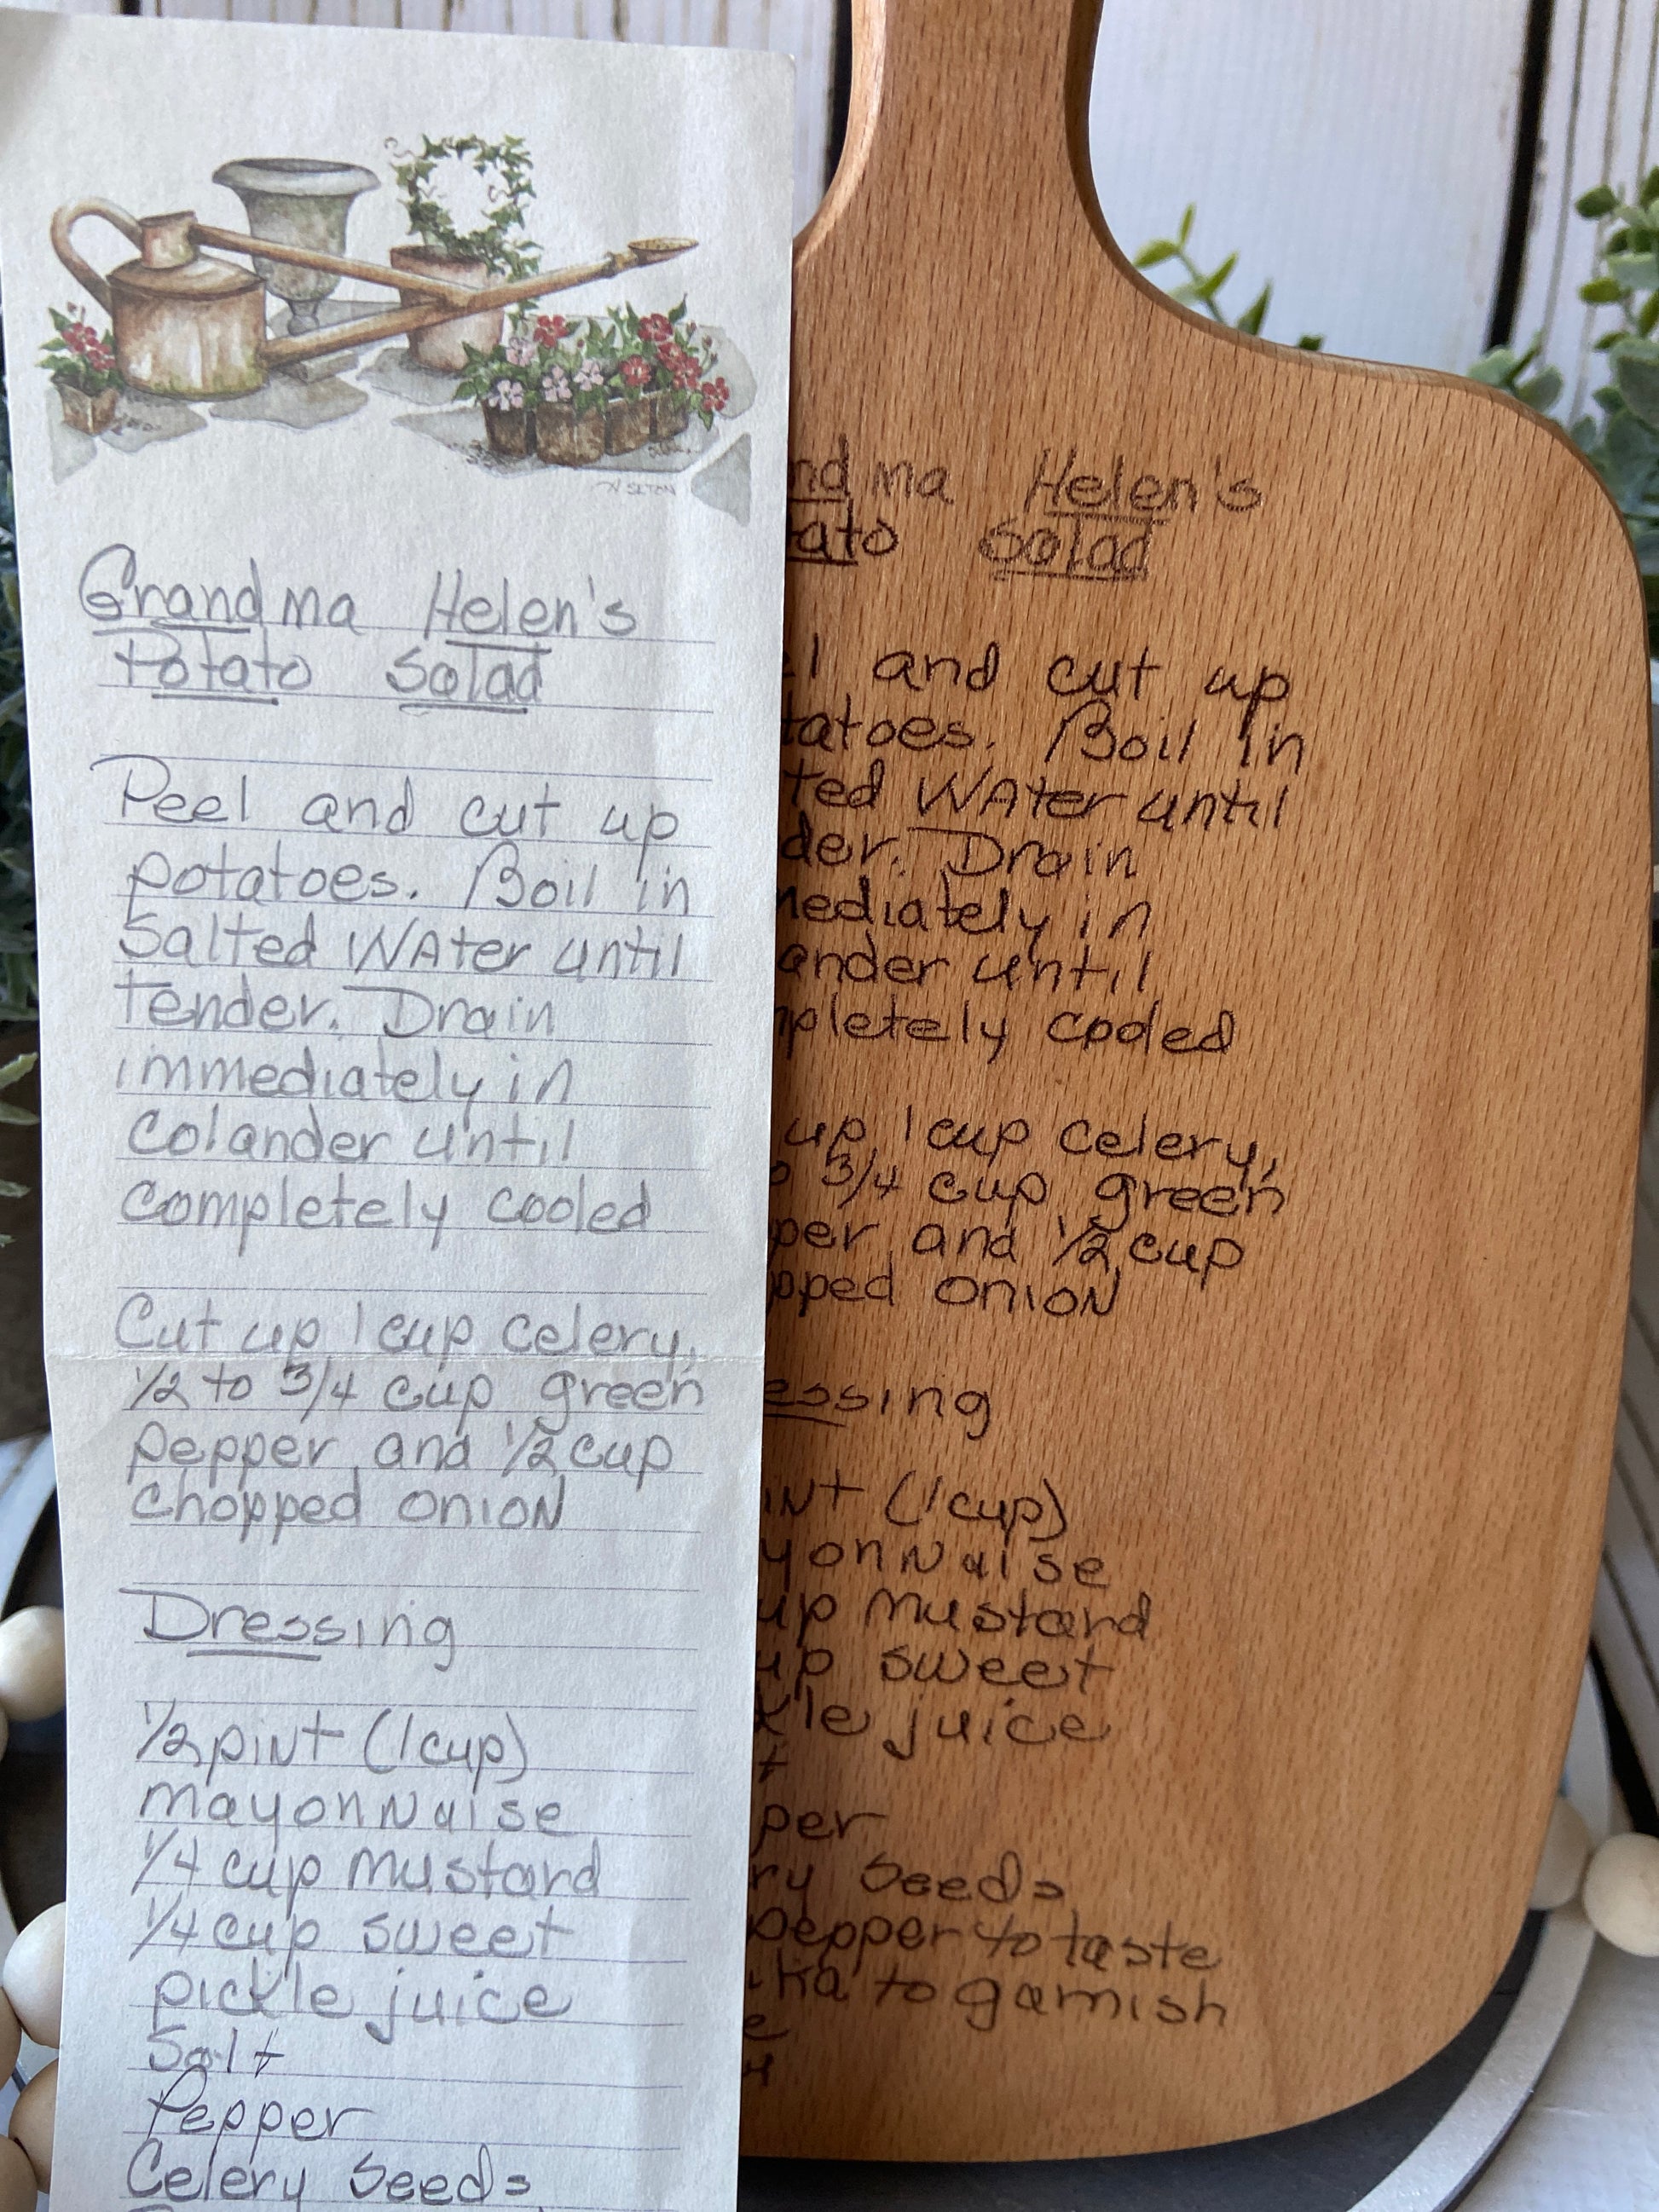 Grandma Helen's
Potato Salad
Peel and cut up
potatoes. Boil in
Salted WAter until
tender. Drain
immediately in
colander until
completely cooled
Cut up 1 cup celery,
1/2 to 3/4 cup green
pepper and 1/2 cup
chopped oniON
Dressing
1/2 piNt (1 cup)
mayonNaise
1/4 cup mustard
1/4 cup sweet
pickle juice
Salt
Pepper
Celery Seeds
ndma Helen's
ato Salad
l and cut up
tatoes. Boil in
ted WAter until
der. Drain
mediately in
ander until
mpletely cooled
up 1 cup celery,
o 3/4 cup green
per and 1/2 cup
pped oniON
essing
iNt (1 cup)
yonNaise
up mustard
up sweet
kle juice
t
per
ry Seeds
pepper to taste
ika to garnish
e